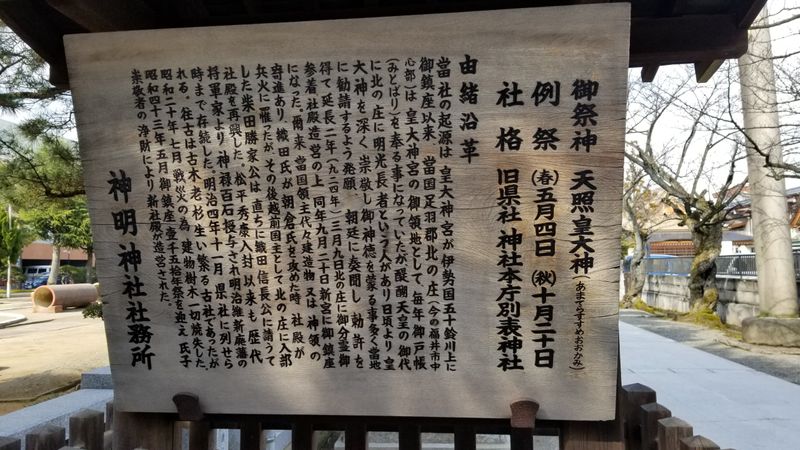 御祭神 天照皇大神(あまてらすすめおおかみ)
例祭 (春)五月四日 (秋)十月二十日
社格 旧県社 神社本庁別表神社
由緒沿革
当社の起源は 皇大神宮が伊勢国五十鈴川上に
御鎮座以来、当国足羽郡北の庄(今の福井市中
心部)は 皇大神宮の御領地として、毎年御戸帳
(みとばり)を奉る事になっていたが醍醐天皇の御代
に北の庄に明光長者という人があり日頃より皇
大神を深く崇敬し御神徳を蒙る事多く当地
に勧請するよう発願、朝廷に奏聞し勅許を
得て延長二年(九二四年)三月九日北の庄に御分霊御
参着、社殿造営の上 同年九月二十日新宮に御鎮座
になった。爾来 当国領主代々建造物 又は神領の
寄進あり 織田氏が朝倉氏を攻めた時、社殿が
兵火に罹ったが、その後越前国主として北の庄に入部
した柴田勝家公は 直ちに織田信長公に請うて
社殿を再興した。松平秀康入封以来も 歴代
将軍家より 神禄百石授与され明治維新廃藩の
時まで存続した。明治四年十一月 県社に列せら
れる。往古は古木老杉生い繁る古社であったが
昭和二十年七月 戦災の為 建物樹木一切焼失した。
昭和四十三年五月御鎮座壱千五拾年祭を迎え氏子
崇敬者の浄財により新社殿が造営された。
神明神社社務所